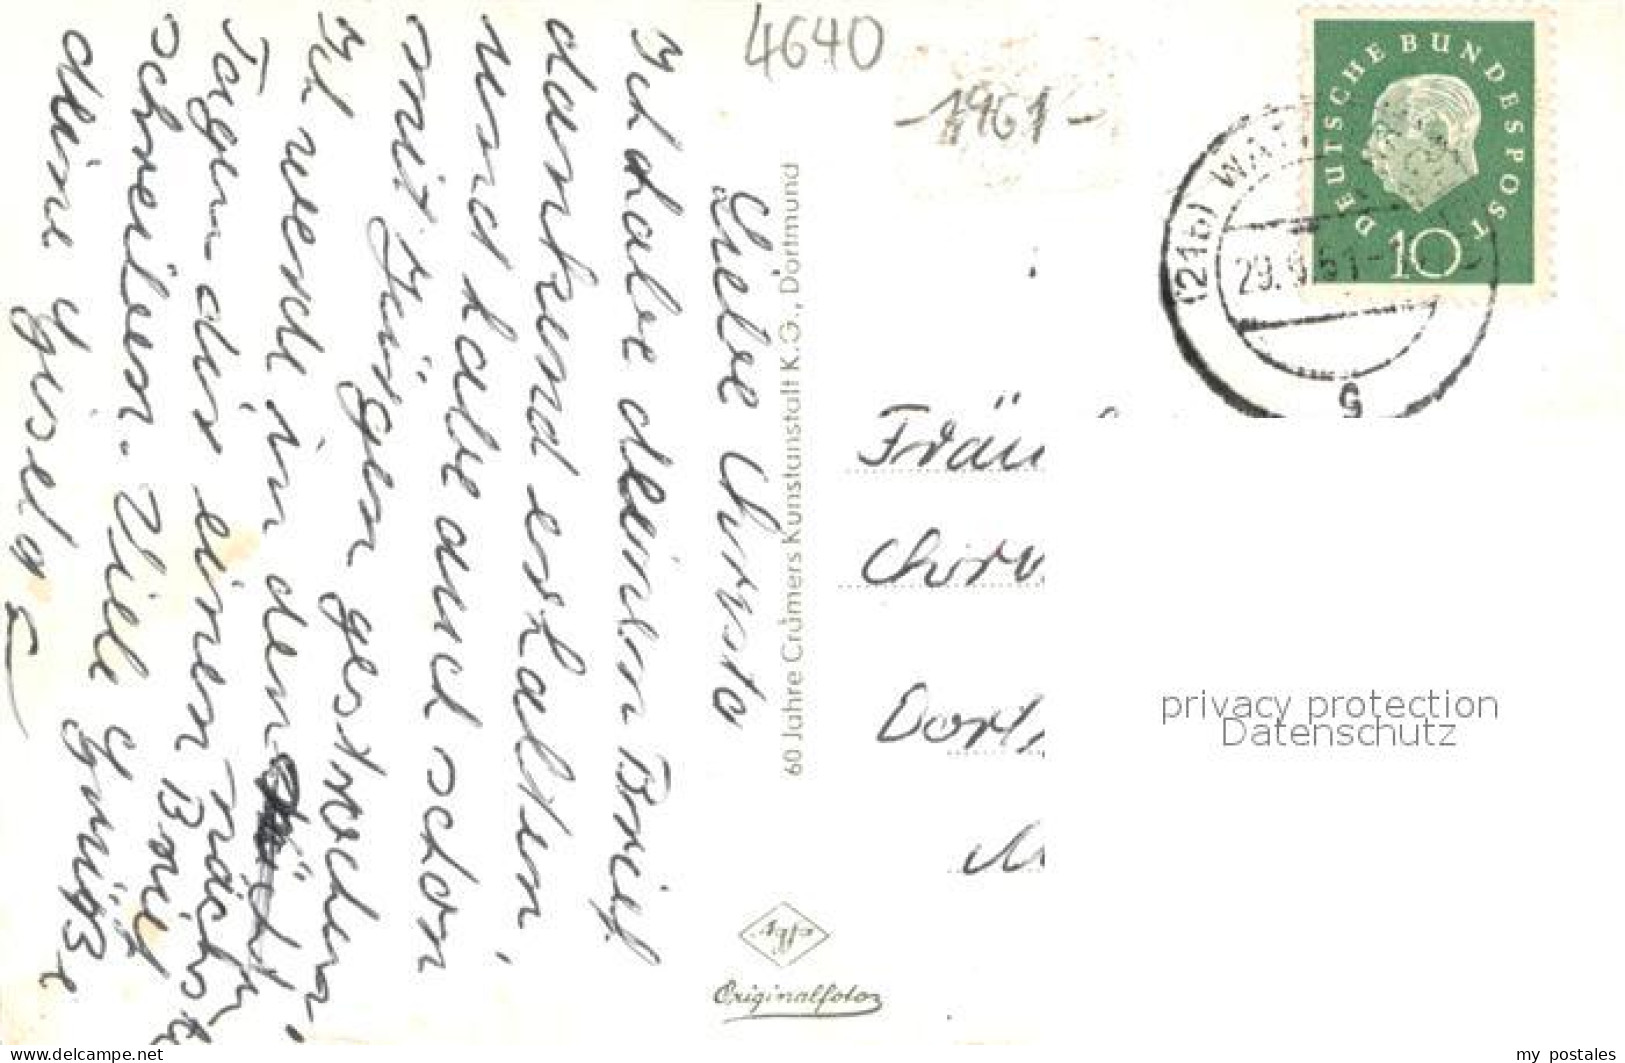 4640
-1961-
DEUTSCHE BUNDESPOST
10
(21b) WA
29.9.61-
g
Liebe Christa
Ich habe deinen Brief
dankend erhalten,
und habe auch schon
mit Jürgen gesprochen.
Ich werde in den nächsten
Tagen dir einen Brief
schreiben. Viele Grüße
deine Gisela
60 Jahre Cramers Kunstanstalt K.G., Dortmund
Agfa
Originalfoto
Fräu
Chr
Dort
privacy protection
Datenschutz
delcampe.net
my_postales